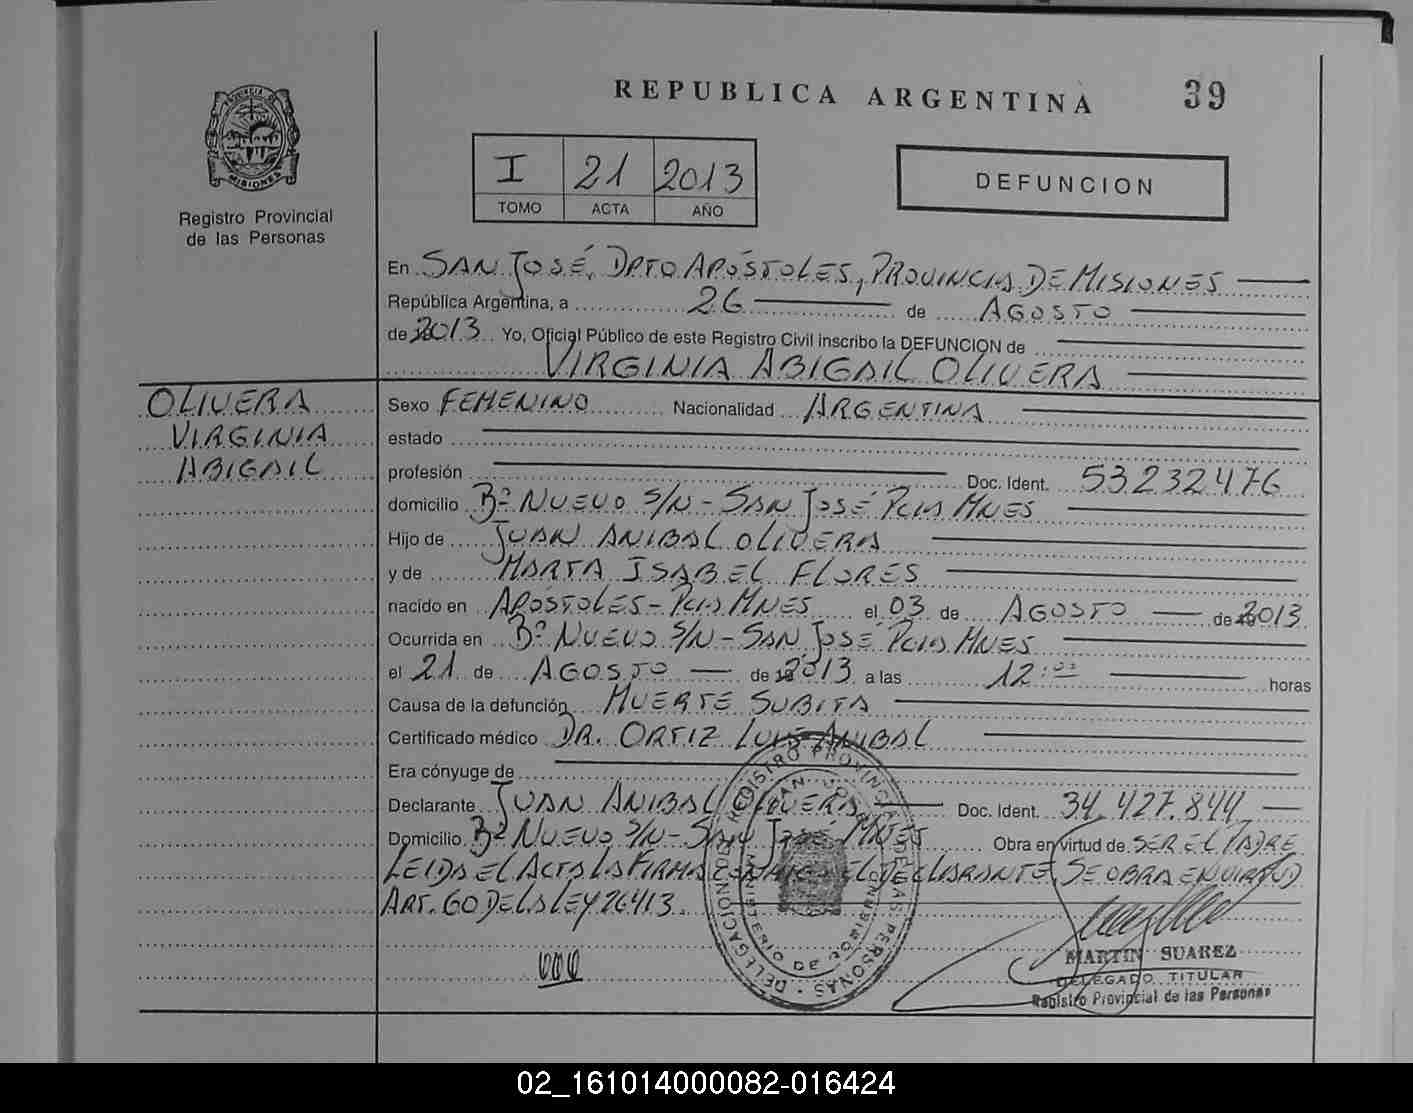 REPUBLICA ARGENTINA 39
PROVINCIA DE
MISIONES
Registro Provincial
de las Personas
I 21 2013
TOMO ACTA AÑO
DEFUNCION
En SAN JOSÉ, DPTO APÓSTOLES, PROVINCIA DE MISIONES
República Argentina, a 26 de AGOSTO
de 2013 Yo, Oficial Público de este Registro Civil inscribo la DEFUNCION de
VIRGINIA ABIGAIL OLIVERA
OLIVERA
VIRGINIA
ABIGAIL
Sexo FEMENINO Nacionalidad ARGENTINA
estado
profesión Doc. Ident. 53232476
domicilio Bº NUEVO S/N - SAN JOSÉ PCIA MNES
Hijo de JUAN ANIBAL OLIVERA
y de MARTA ISABEL FLORES
nacido en APÓSTOLES - PCIA MNES el 03 de AGOSTO de 2013
Ocurrida en Bº NUEVO S/N - SAN JOSÉ PCIA MNES
el 21 de AGOSTO de 2013 a las 12:00 horas
Causa de la defunción MUERTE SUBITA
Certificado médico DR. ORTIZ LUIS ANIBAL
Era cónyuge de
Declarante JUAN ANIBAL OLIVERA Doc. Ident. 34.427.844
Domicilio Bº NUEVO S/N - SAN JOSÉ MNES Obra en virtud de SER EL PADRE
LEIDA EL ACTA LA FIRMA CONMIGO EL DECLARANTE. SE OBRA EN VIRTUD
ART. 60 DE LA LEY 26413.
REGISTRO PROVINCIAL DE LAS PERSONAS · DELEGACION
SAN JOSE
MINISTERIO DE GOBIERNO
MARTIN SUAREZ
DELEGADO TITULAR
Registro Provincial de las Personas
02_161014000082-016424